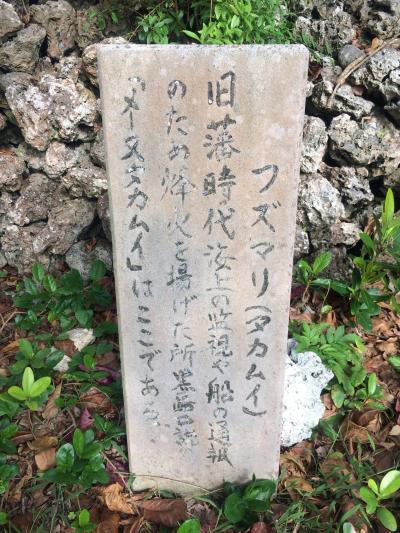 フズマリ(タカムイ)
旧藩時代海上の監視や船の通報
のため烽火を揚げた所黒島口説
「メーヌタカムイ」はここである。